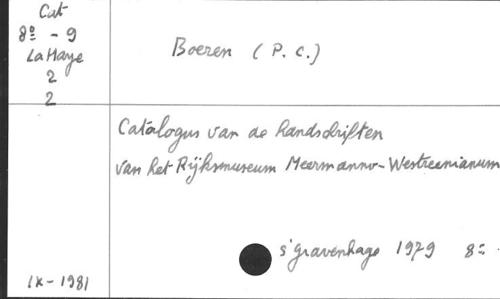 Cat
8º - 9
La Haye
2
2
Boeren (P. C.)
Catalogus van de handschriften
van het Rijksmuseum Meermanno-Westreenianum
s'gravenhage 1979 8º
IX-1981